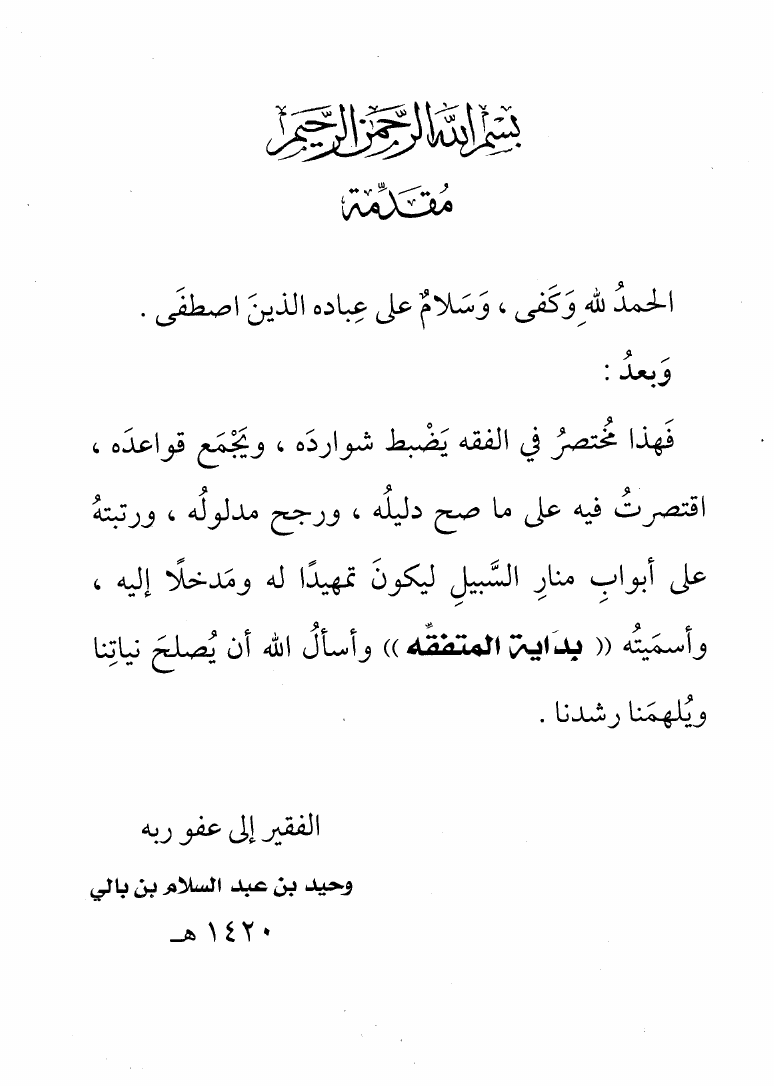 بِسْمِ اللَّهِ الرَّحْمَٰنِ الرَّحِيمِ
مُقَدِّمَة
الحمدُ للهِ وَكَفى ، وَسَلامٌ على عِباده الذينَ اصطفَى .
وَبعدُ :
فَهذا مُختصرُ في الفقه يَضْبط شواردَه ، ويَجْمَع قواعدَه ،
اقتصرتُ فيه على ما صح دليلُه ، ورجح مدلولُه ، ورتبتهُ
على أبوابِ منارِ السَّبيلِ ليكونَ تمهيدًا له ومَدخلًا إليه ،
وأسمَيتُه (( بدَاية المتفقّه )) وأسألُ الله أن يُصلحَ نياتِنا
ويُلهمَنا رشدنا .
الفقير إلى عفو ربه
وحيد بن عبد السلام بن بالي
١٤٢٠ هـ